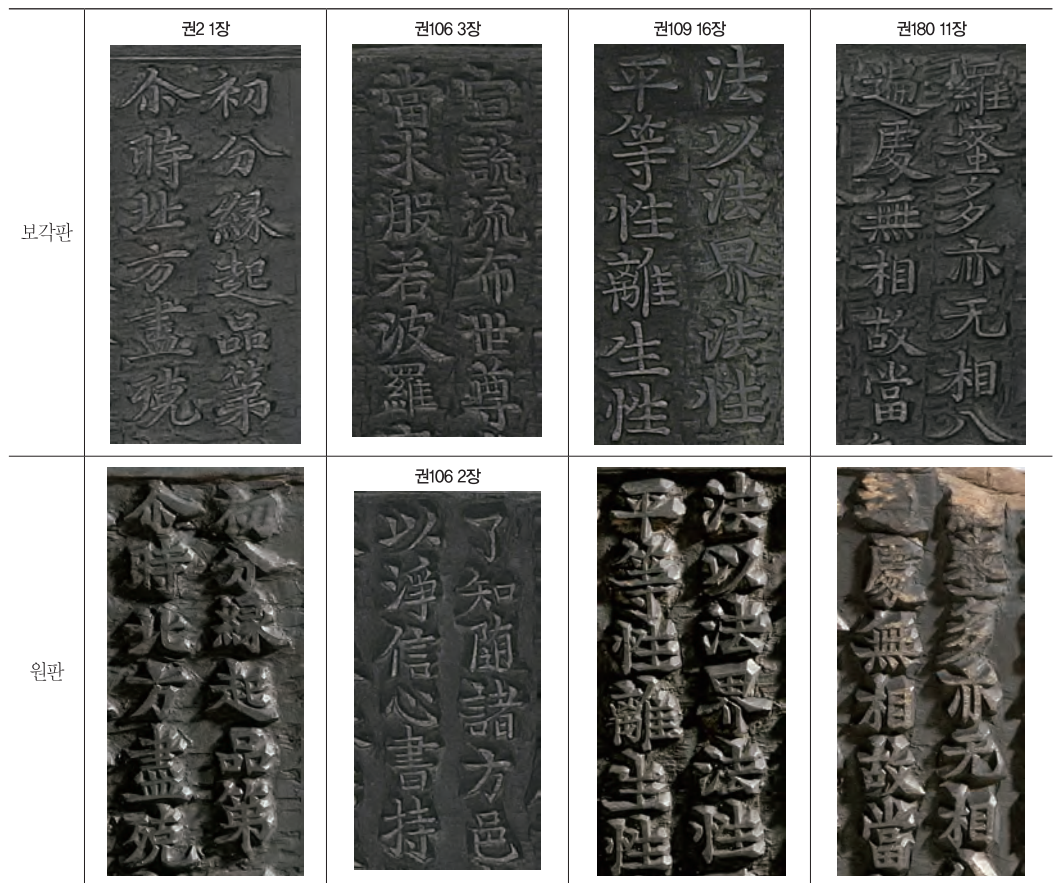 권2 1장
권106 3장
권109 16장
권180 11장
보각판
初分緣起品第
尒時北方盡殑
宣說流布世尊
當求般若波羅
法以法界法性
平等性離生性
羅蜜多亦无相八
遍處無相故當
권106 2장
원판
初分緣起品第
尒時北方盡殑
了知隨諸方邑
以淨信心書持
法以法界法性
平等性離生性
多亦无相
處無相故當